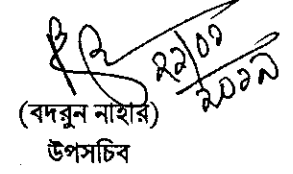 ২২/০১
২০১৯
(বদরুন নাহার)
উপসচিব